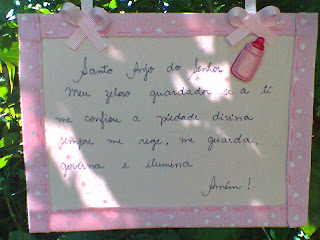 Santo Anjo do Senhor
Meu zeloso guardador se a ti
me confiou a piedade divina
sempre me rege, me guarda,
governa e ilumina
Amém!